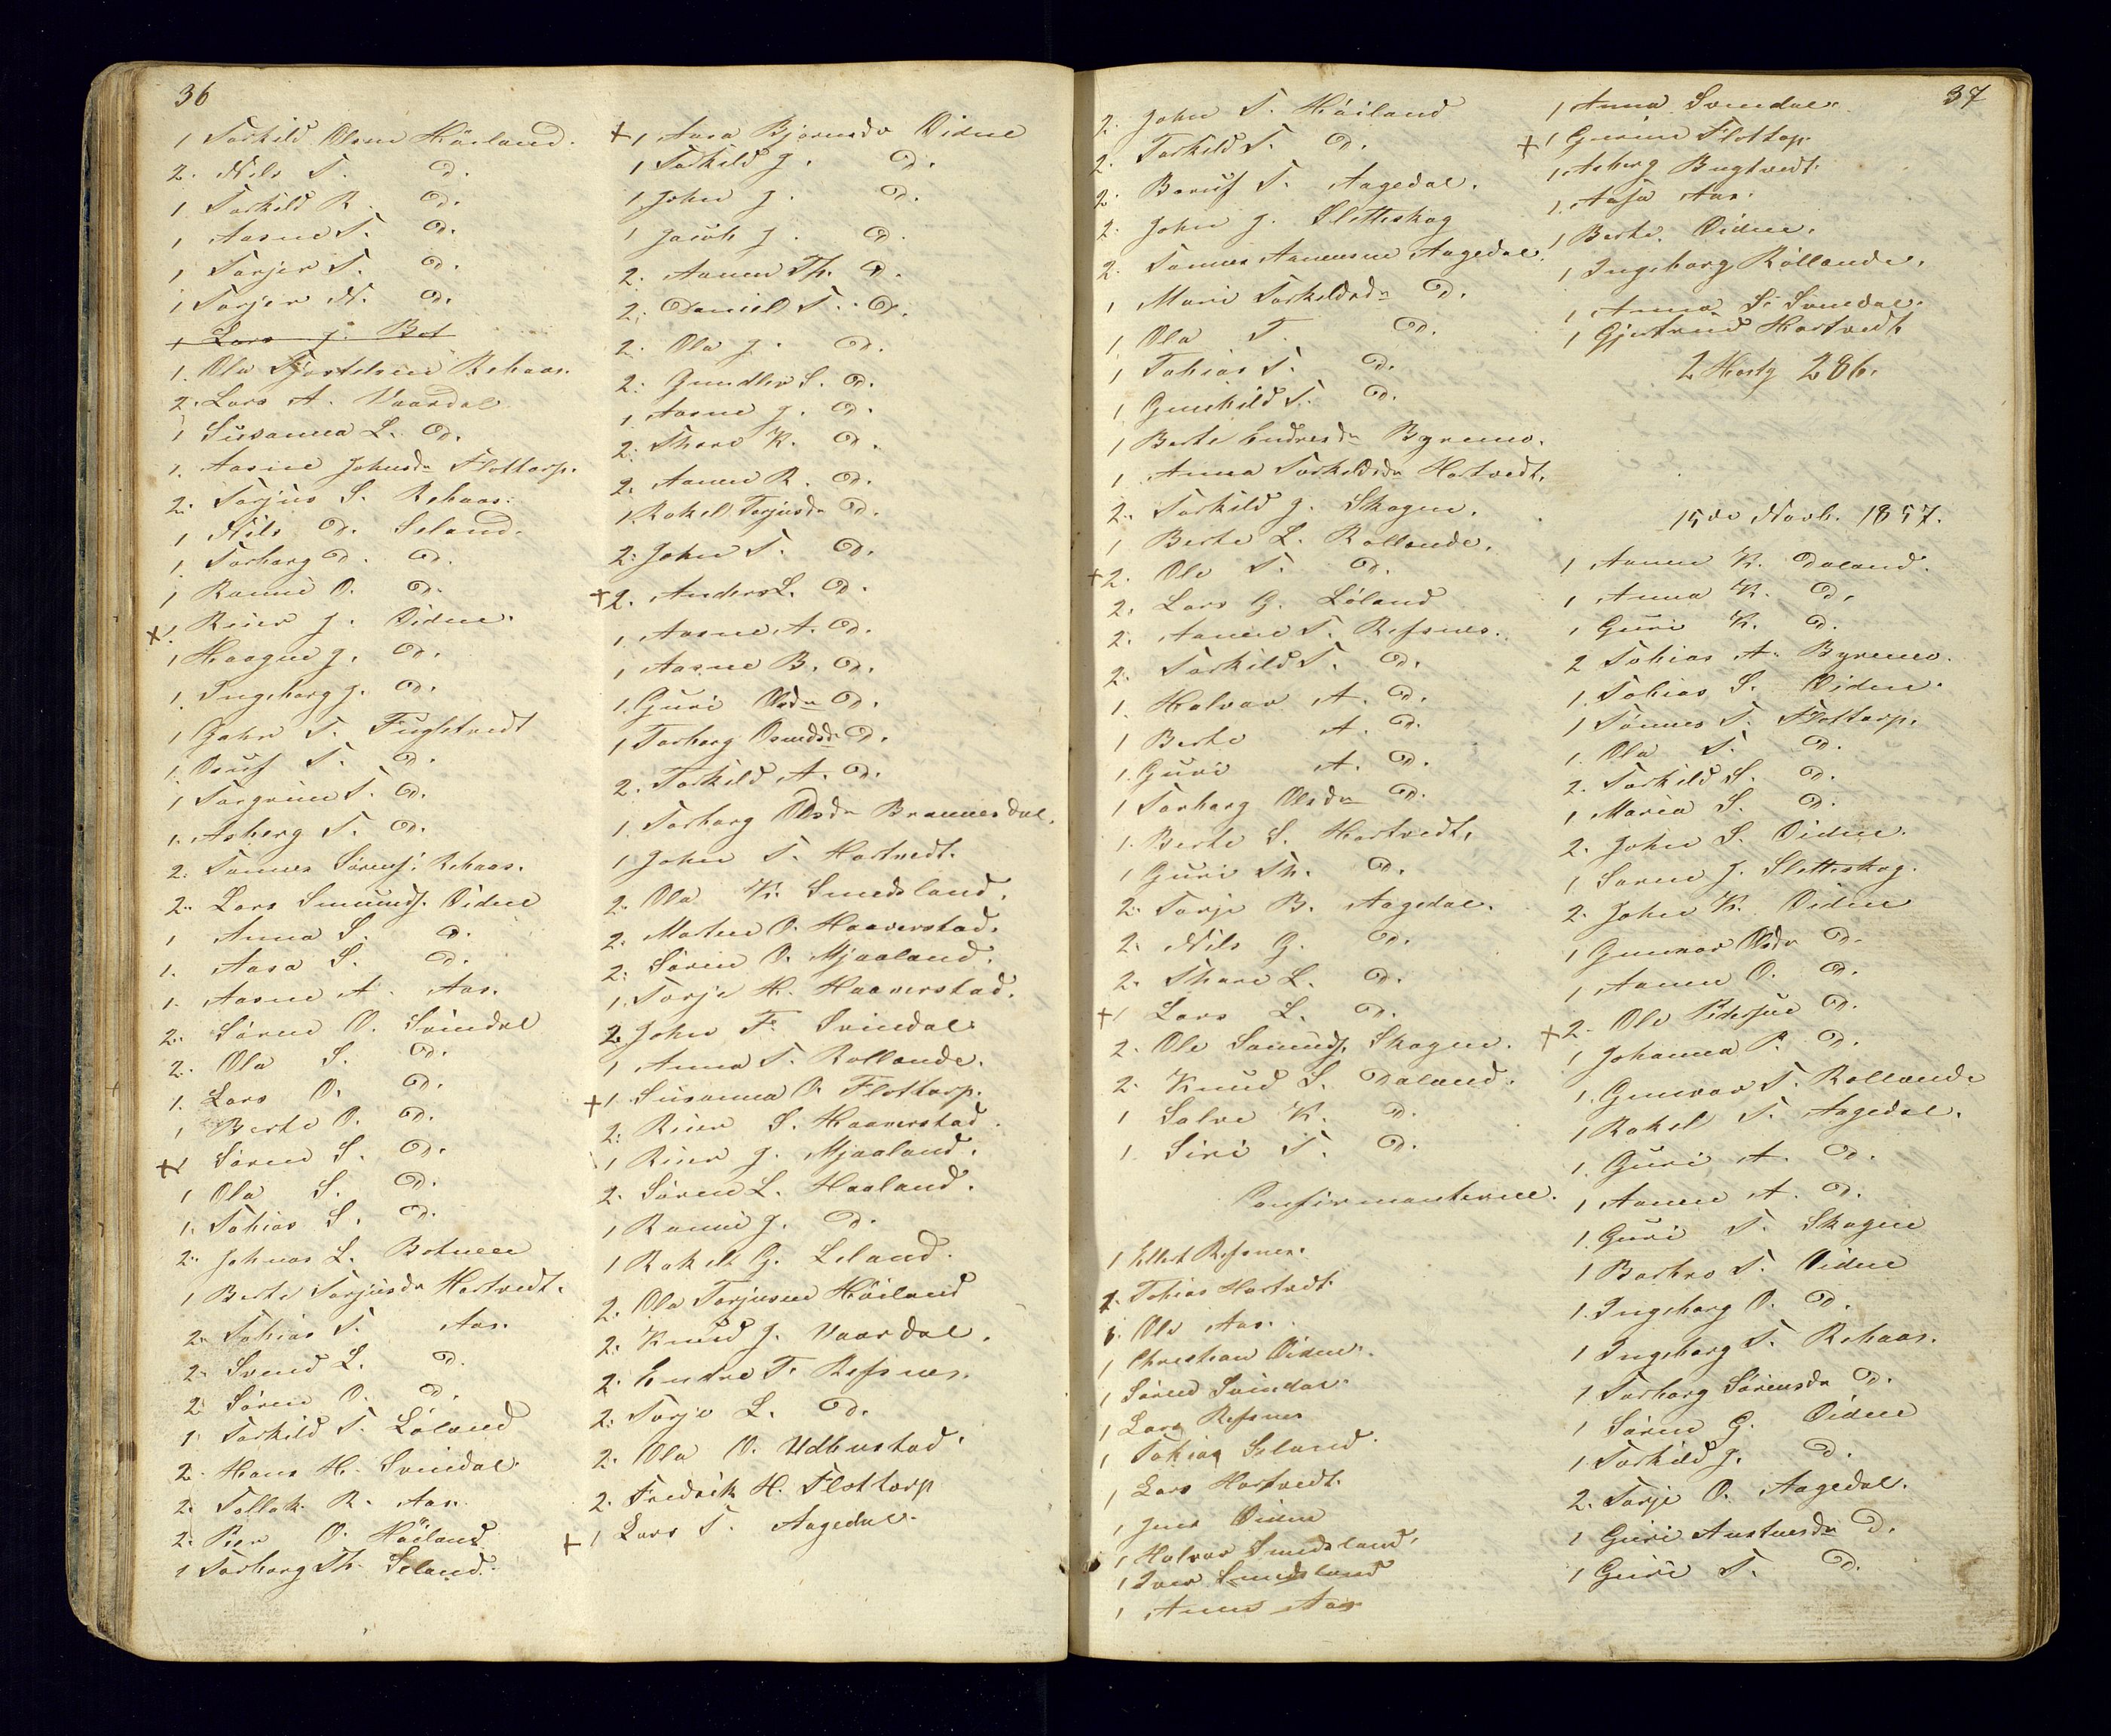 36
1 Torkild Olsen Höiland.
2. Nils T. D.
1. Torkild R. D.
1 Aasne T. D.
1 Torjer T. D.
1 Torjer N. D.
1 Lars J. Bot
1. Ola Kjostelsen Rehaas.
2. Lars A. Vaardal
1 Susanna L. D.
1. Aasne Johnsdr Flottorp.
2. Torjus S. Rehaas.
1 Nils D. Seland.
1 Torborg D. D.
1 Ranni O. D.
+1. Reier J. Eidne.
1 Haagne J. D.
1. Ingeborg J. D.
1 John T. Fuglstvedt
1. Osuf T. D.
1 Torgrim T. D.
1. Asberg T. D.
2. Tønnes Sörens. Rehaas.
2. Lars Smunds. Eidne
1 Anna S. D.
1. Aasa S. D.
1. Aasne A. Aas.
2. Sören O. Svindal
2. Ola S. D.
1. Lars O. D.
1 Berte O. D.
+1 Sören S. D.
1 Ola S. D.
1. Tobias S. D.
2. Johnas L. Botnen
1 Berte Torjusdr Hortvedt.
2. Tobias T. Aas.
2. Svend L. D.
2 Sören O. D.
1. Torkild T. Löland
2. Hans H. Svindal.
2. Tollak R. Aas.
2. Peer O. Höiland.
1 Torborg Th. Seland.
+1 Aasa Bjornsdr Eidne
1 Torkild J. D.
1 John J. D.
1 Jacob J. D.
2. Aanen Th. D.
2. Daniel T. D.
2. Ola J. D.
2. Gundler S. D.
1 Aasne J. D.
2. Thore K. D.
2. Aanen R. D.
1. Rakel Torjusdr D.
2. John T. D.
+2. Anders L. D.
1. Aasne A. D.
1 Aasne B. D.
1. Guri Olsdr D.
1 Torborg Osmdsdr D.
2. Torkild A. D.
1. Torborg Olsdr Brennesdal.
1 John T. Hortvedt.
2. Ola K. Smedsland.
2. Morten O. Haaverstad.
2. Sören O. Mjaaland.
1. Torje H. Haaverstad.
2. John F. Svindal
1 Anna T. Rollande.
+1. Susanna O. Flottorp.
2. Reier S. Haaverstad.
1 Reier J. Mjaaland.
2. Sören L. Haaland.
1 Ranni J. D.
1 Rakel G. Leland.
2. Ola Torjusen Höiland
2. Knud J. Vaardal.
2. Endre T. Refsnes.
2. Torje L. D.
2. Ola O. Udbustad.
2. Fredrik H. Flottorp
+1 Lars T. Aagedal.
37
2. John T. Höiland
2. Torkild T. D.
2. Boruf T. Aagedal.
2. John J. Sletteskog
2. Tønnes Aanensen Aagedal.
1 Marie Torkildsdr D.
1 Ola T. D.
1 Tobias T. D.
1 Gunhild T. D.
1 Berte Endresdr Byremo.
1. Anna Torkildsdr Hortvedt.
2. Torkild J. Skogen.
1 Berte L. Rollande.
+2. Ole T. D.
2. Lars G. Löland
2. Aanen T. Refsnes.
2. Torkild T. D.
1. Halvor A. D.
1 Berte A. D.
1. Guri A. D.
1 Torborg Olsdr D.
1. Berte S. Hortvedt.
1 Guri Th. D.
2. Torje B. Aagedal.
2. Nils G. D.
2. Thore L. D.
+1 Lars L. D.
2. Ole Samuds. Skogen.
2. Knud S. Daland.
1 Salve K. D.
1. Siri T. D.
Confirmanterne.
1 Ellert Refsnes.
1. Tobias Hortvedt
1. Ole Aas.
1 Christian Eidne.
1 Sören Svindal.
1 Lars Refsnes
1 Tobias Seland.
1 Lars Hortvedt.
1 Jens Eidne
1 Halvor Smedsland.
1 Iver Smedsland
1 Anne Aas
1 Anna Svindal.
+1 Gurine Flottop.
1 Asberg Bugtvedt.
1. Aasa Aas.
1 Berte Eidne.
1 Ingeborg Röllande.
1 Anna S. Svindal.
1 Gjertrud Hortvedt.
2 Hertz 286.
15de Novb. 1857.
1 Aanen K. Daland.
1 Anna K. D.
1 Guri K. D.
2 Tobias A. Byremo.
1. Tobias S. Eidne.
1 Tönnes T. Flottorp.
1. Ola T. D.
2. Torkild S. D.
1 Maren S. D.
2. John S. Eidne.
1. Soren J. Sletteskog.
2. John K. Eidne
1 Gunvor Olsdr D.
1 Aanen O. D.
+2. Ole Pedersen D.
1 Johanna P. D.
1. Gunvor T. Rollande
1 Rakel T. Aagedal.
1. Guri A. D.
1 Aanen A. D.
1. Guri T. Skogen
1 Barbro T. Eidne
1. Ingeborg O. D.
1 Ingeborg T. Rehaas.
1. Torborg Sörensdr D.
1 Sören G. Eidne
1 Torkild J. D.
2. Torje O. Aagedal.
1 Guri Austnesdr D.
1 Guri T. D.